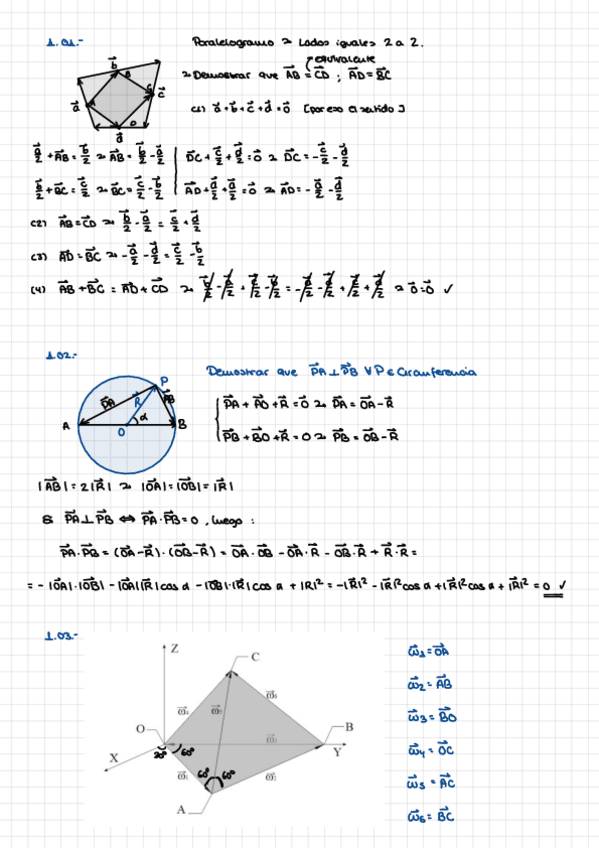 1.01.- Paralelogramo ⇒ Lados iguales 2 a 2.
equivalente
⇒ Demostrar que AB⃗ = CD⃗ ; AD⃗ = BC⃗
(1) a⃗+b⃗+c⃗+d⃗=0⃗ [por eso el sentido]
b⃗
a⃗ A B C c⃗
D
d⃗
a⃗/2 + AB⃗ = b⃗/2 ⇒ AB⃗ = b⃗/2 - a⃗/2 | DC⃗ + c⃗/2 + d⃗/2 = 0⃗ ⇒ DC⃗ = -c⃗/2 - d⃗/2
b⃗/2 + BC⃗ = c⃗/2 ⇒ BC⃗ = c⃗/2 - b⃗/2 | AD⃗ + d⃗/2 + a⃗/2 = 0⃗ ⇒ AD⃗ = -a⃗/2 - d⃗/2
(2) AB⃗ = CD⃗ ⇒ b⃗/2 - a⃗/2 = c⃗/2 + d⃗/2
(3) AD⃗ = BC⃗ ⇒ -a⃗/2 - d⃗/2 = c⃗/2 - b⃗/2
(4) AB⃗ + BC⃗ = AD⃗ + CD⃗ ⇒ b⃗/2 - a⃗/2 + c⃗/2 - b⃗/2 = -a⃗/2 - d⃗/2 + c⃗/2 + d⃗/2 ⇒ 0⃗=0⃗ ✓
1.02.-
Demostrar que PA⃗ ⊥ PB⃗ ∀ P ∈ Circunferencia
P
PA⃗ R⃗ AB⃗
A O α B
PA⃗ + AO⃗ + R⃗ = 0⃗ ⇒ PA⃗ = OA⃗ - R⃗
PB⃗ + BO⃗ + R⃗ = 0 ⇒ PB⃗ = OB⃗ - R⃗
|AB⃗| = 2|R⃗| ⇒ |OA⃗| = |OB⃗| = |R⃗|
Si PA⃗ ⊥ PB⃗ ⇔ PA⃗ · PB⃗ = 0 , luego :
PA⃗ · PB⃗ = (OA⃗ - R⃗) · (OB⃗ - R⃗) = OA⃗ · OB⃗ - OA⃗ · R⃗ - OB⃗ · R⃗ + R⃗ · R⃗ =
= - |OA⃗| · |OB⃗| - |OA⃗||R⃗| cos α - |OB⃗| · |R⃗| cos α + |R|² = -|R⃗|² - |R⃗|² cos α + |R⃗|² cos α + |R⃗|² = 0 ✓
1.03.-
Z
C
O
B
X
Y
A
20° 60°
60° 60°
ω⃗₁ = OA⃗
ω⃗₂ = AB⃗
ω⃗₃ = BO⃗
ω⃗₄ = OC⃗
ω⃗₅ = AC⃗
ω⃗₆ = BC⃗